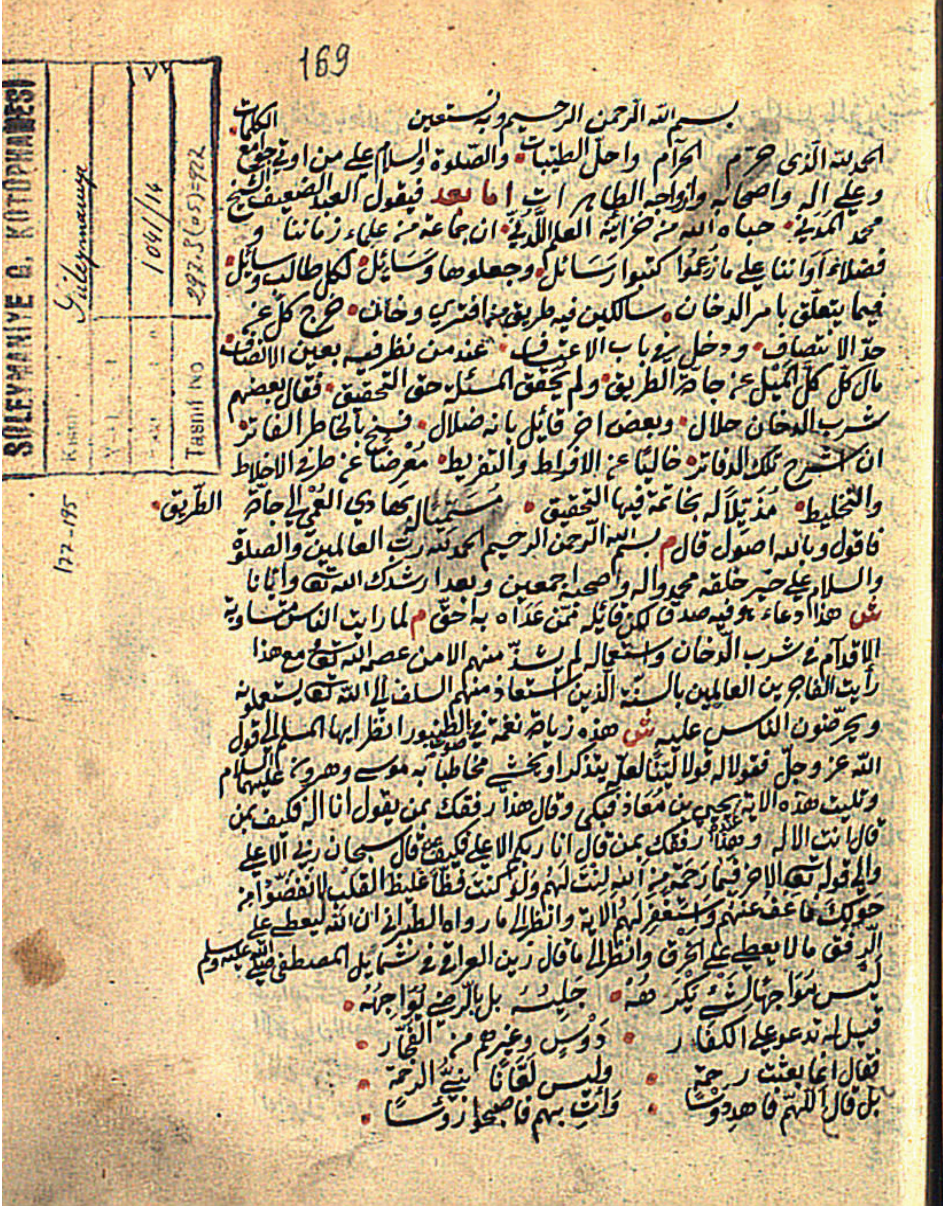 169
SÜLEYMANİYE G. KÜTÜPHANESİ
Kısmı Süleymaniye
1041/14
Tasnif No 297.5(05)=92
122-195
بسم الله الرحمن الرحيم وبه نستعين
الحمد لله الذى حرم الحرام واحل الطيبات والصلوة والسلام على من اوتى جوامع الكلمات
وعلى اله واصحابه وازواجه الطاهرات اما بعد فيقول العبد الضعيف الشيخ
محمد المدنى حباه الله من خزاينه العلم اللدنى ان جماعة من علماء زماننا و
فضلاء آواننا على ما زعموا كتبوا رسائل وجعلوها وسائل لكل طالب وسائل
فيما يتعلق بامر الدخان سالكين فيه طريق من افترى وخان خرج كل عن
حد الانتصاف ودخل فى باب الاعتساف عند من نظر فيه بعين الانصاف
مال كل كل الميل عن جادة الطريق ولم يحقق المسئلة حق التحقيق فقال بعضهم
شرب الدخان حلال وبعض اخر قايل بانه ضلال فسنح بالخاطر الفاتر
ان اشرح تلك الدفاتر خاليا عن الافراط والتفريط معرضا عن طرفى الاخلاط
والتخليط مذيلا له بخاتمة فيها التحقيق مستعينا بهادى العمى الى جادة الطريق
فاقول وبالله اصول قال م بسم الله الرحمن الرحيم الحمد لله رب العالمين والصلوة
والسلام على خير خلقه محمد واله وصحبه اجمعين وبعد ارشدك الله تعالى وايانا
ش هذا دعاء هو فيه صدق لكن قايله فمن عداه به احق م لما رايت الناس متساوية
الاقدام فى شرب الدخان واستعماله لم يشذ منهم الا من عصمه الله تعالى مع هذا
رأيت الفاجرين العالمين بالسنة الذين استعاذ منهم السلف الى الله تعالى يستعملونه
ويحرضون الناس عليه ش هذه زيادة نغمة فى الطنبور انظر ايها المسلم الى قول
الله عز وجل فقولا له قولا لينا لعله يتذكر او يخشى مخاطبا به موسى وهرون عليهما السلام
وتليت هذه الاية يحيى بن معاذ فبكى وقال هذا رفقك بمن يقول انا اله فكيف بمن
قال انت الاله وهذا رفقك بمن قال انا ربكم الاعلى فكيف بمن قال سبحان ربى الاعلى
والى قوله تعالى الاخر فبما رحمة من الله لنت لهم ولو كنت فظا غليظ القلب لانفضوا من
حولك فاعف عنهم واستغفر لهم الاية وانظر الى ما رواه الطبرانى ان الله ليعطى على
الرفق ما لا يعطى على الخرق وانظر الى ما قال زين العراقى فى شمايل المصطفى صلى الله عليه وسلم
ليس مواجها لشىء يكرهه جليسه بل بالرضى يواجهه
قيل له تدعو على الكفار دوس وغيرهم من الفجار
فقال انما بعثت رحمة وليس لعانا نبى الرحمة
بل قال اللهم فاهد دوسا وأت بهم فاصبحوا رؤسا